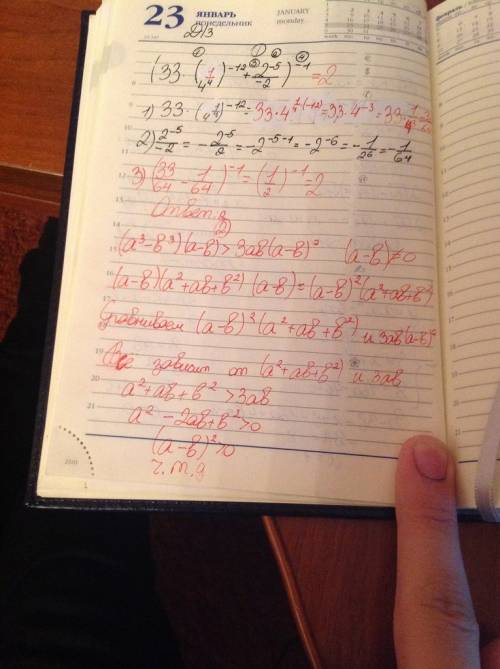 23 ЯНВАРЬ понедельник JANUARY monday
Д/З
(33·(1/4^4)^-12 + 2^-5/-2)^-1 = 2
1) 33·(4^1/4)^-12 = 33·4^1/4(-12) = 33·4^-3 = 33·
2) 2^-5/-2 = -2^-5/2 = -2^-5-1 = -2^-6 = -1/2^6 = -1/64
3) (33/64 - 1/64)^-1 = (1/2)^-1 = 2
Ответ:
(2)
(a³-b³)(a-b) > 3ab(a-b)² (a-b)≠0
(a-b)(a²+ab+b²)(a-b) = (a-b)²(a²+ab+b²)
Сравниваем (a-b)²(a²+ab+b²) и 3ab(a-b)²
Все зависит от (a²+ab+b²) и 3ab
a²+ab+b² > 3ab
a²-2ab+b² > 0
(a-b)² > 0
ч.т.д